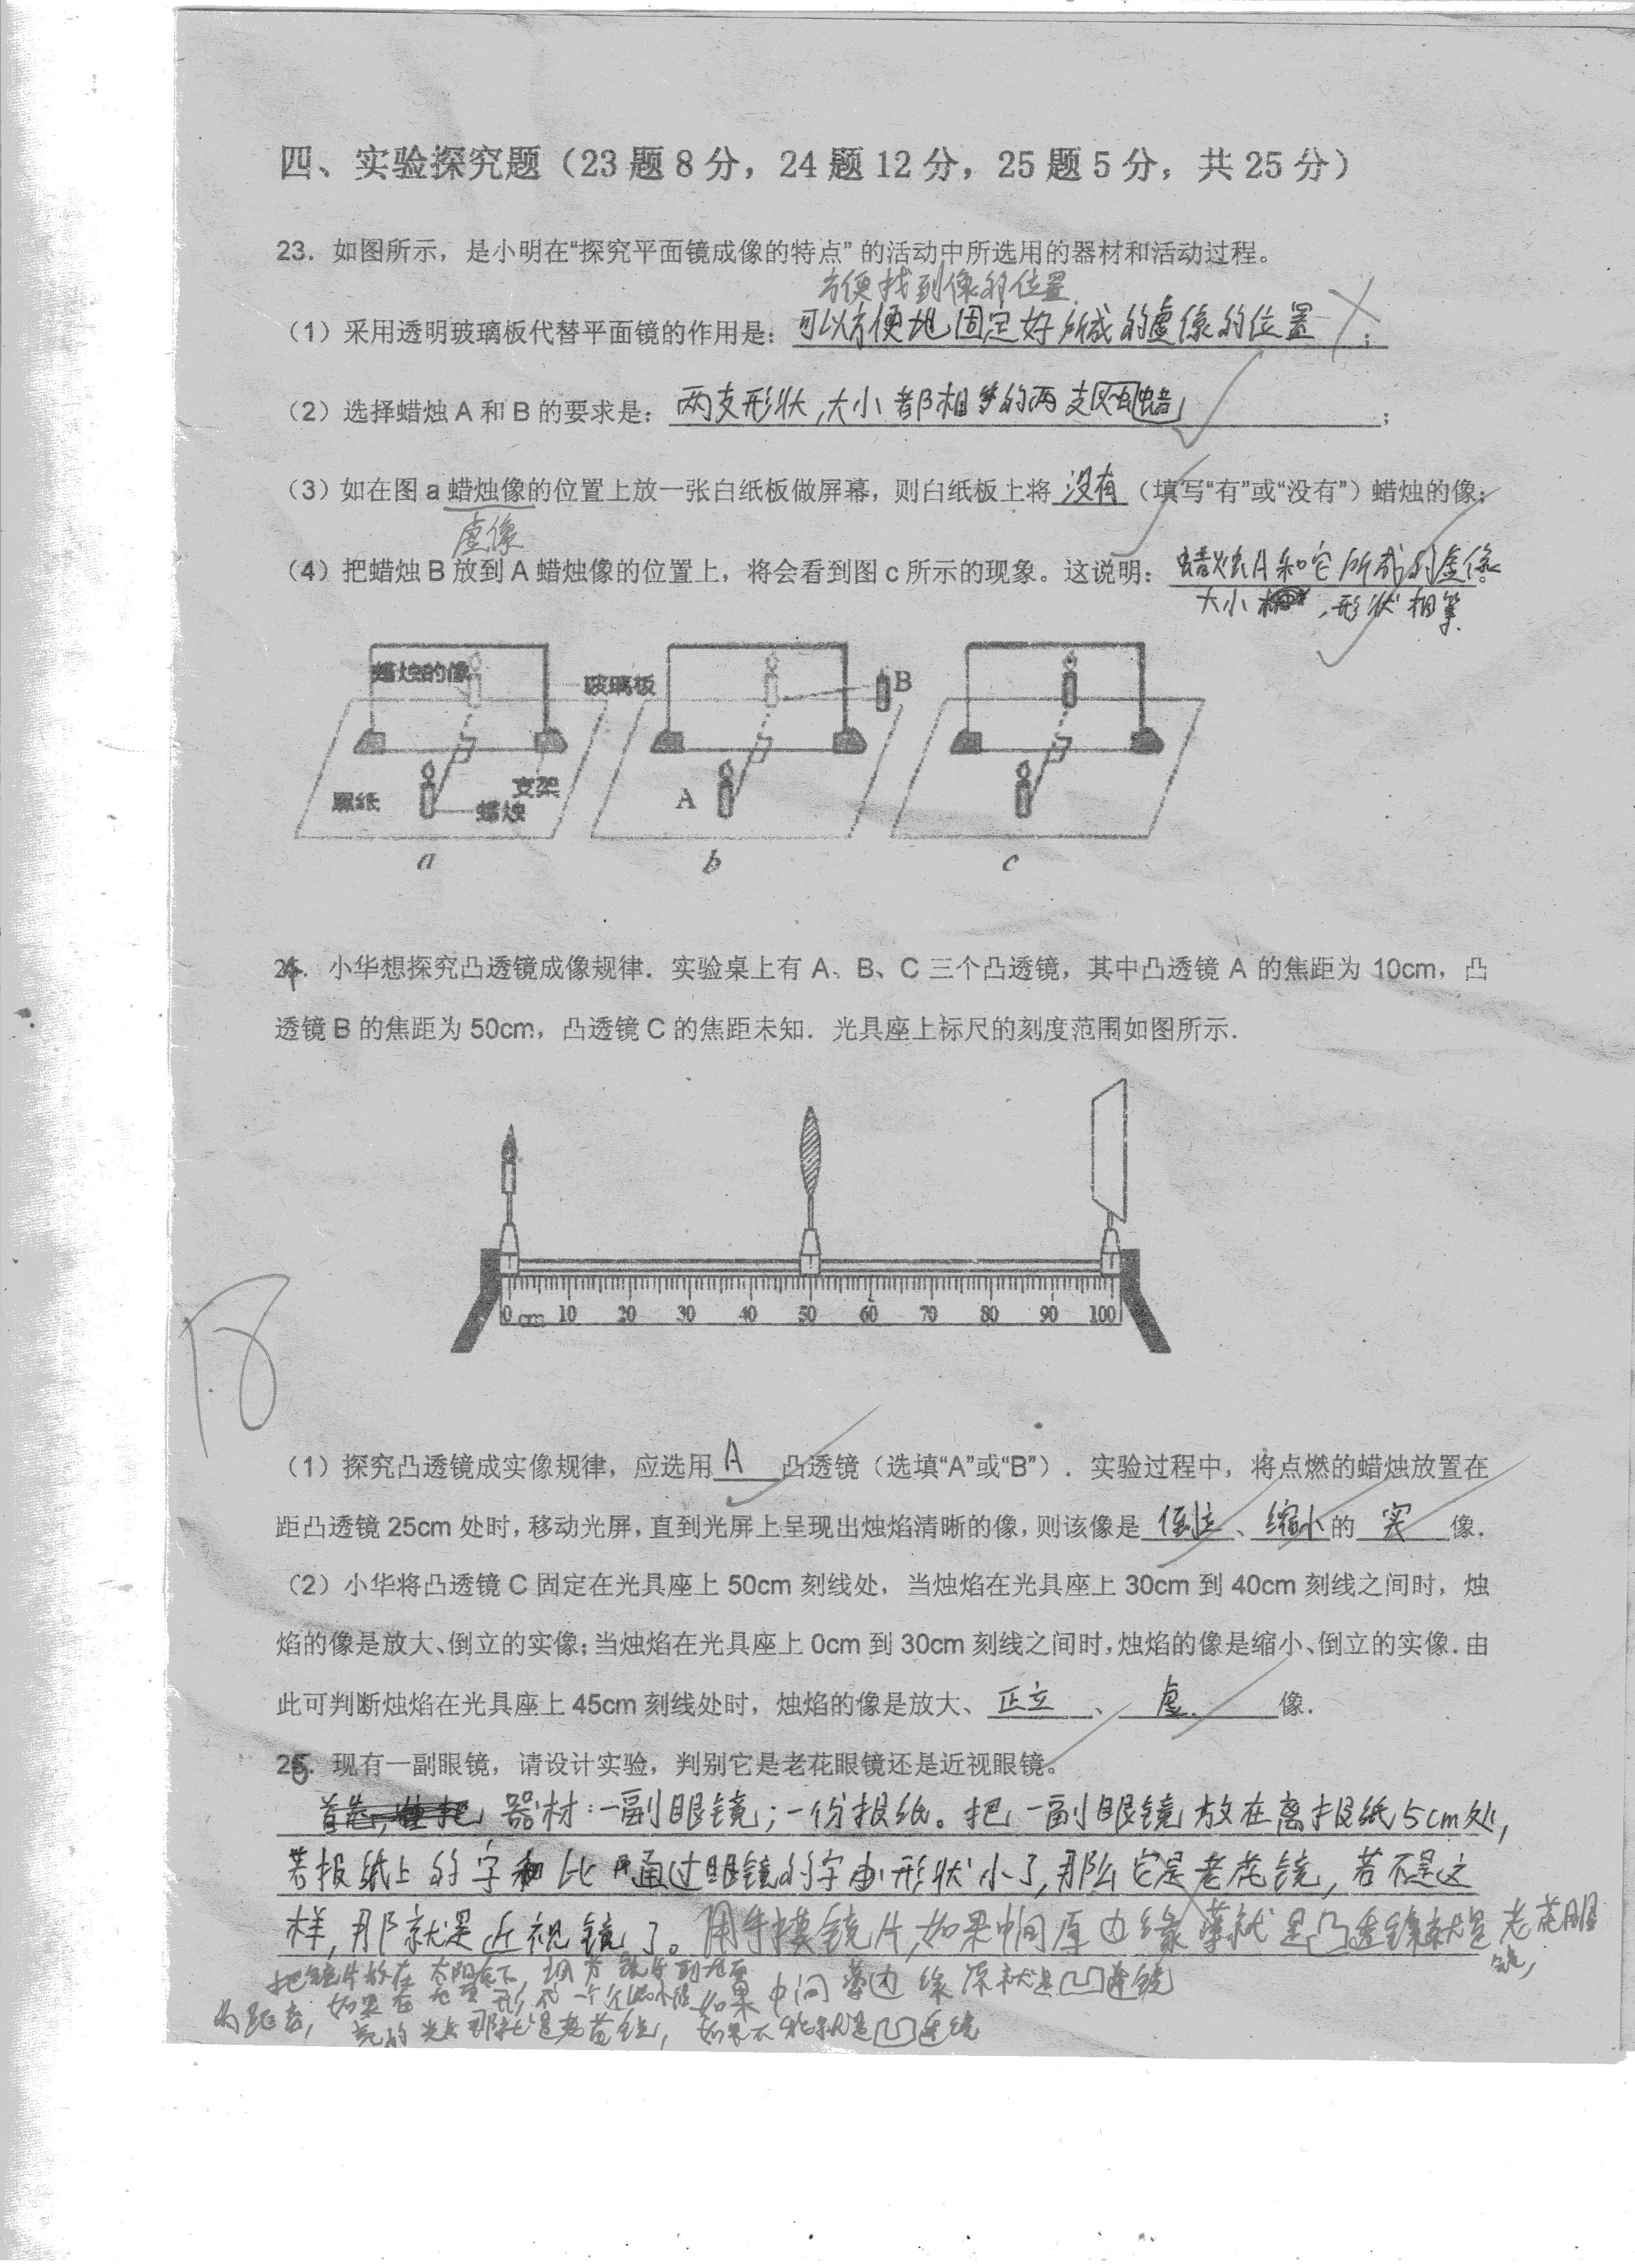 四、实验探究题（23题8分，24题12分，25题5分，共25分）
23．如图所示，是小明在“探究平面镜成像的特点”的活动中所选用的器材和活动过程。
方便找到像的位置
（1）采用透明玻璃板代替平面镜的作用是：可以方便地固定好所成的虚像的位置；
（2）选择蜡烛A和B的要求是：两支形状，大小都相等的两支蜡烛；
（3）如在图a蜡烛像的位置上放一张白纸板做屏幕，则白纸板上将没有（填写“有”或“没有”）蜡烛的像；
虚像
（4）把蜡烛B放到A蜡烛像的位置上，将会看到图c所示的现象。这说明：蜡烛A和它所成的虚像
大小，形状相等．
蜡烛的像 玻璃板 B
黑纸 支架 蜡烛 A
a b c
24．小华想探究凸透镜成像规律．实验桌上有A、B、C三个凸透镜，其中凸透镜A的焦距为10cm，凸
透镜B的焦距为50cm，凸透镜C的焦距未知．光具座上标尺的刻度范围如图所示．
0 cm 10 20 30 40 50 60 70 80 90 100
18
（1）探究凸透镜成实像规律，应选用A凸透镜（选填“A”或“B”）．实验过程中，将点燃的蜡烛放置在
距凸透镜25cm处时，移动光屏，直到光屏上呈现出烛焰清晰的像，则该像是倒立、缩小的实像．
（2）小华将凸透镜C固定在光具座上50cm刻线处，当烛焰在光具座上30cm到40cm刻线之间时，烛
焰的像是放大、倒立的实像；当烛焰在光具座上0cm到30cm刻线之间时，烛焰的像是缩小、倒立的实像．由
此可判断烛焰在光具座上45cm刻线处时，烛焰的像是放大、正立、虚．像．
25．现有一副眼镜，请设计实验，判别它是老花眼镜还是近视眼镜。
器材：一副眼镜；一份报纸。把一副眼镜放在离报纸5cm处，
若报纸上的字比通过眼镜的字形状小了，那么它是老花镜，若不是这
样，那就是近视镜了。用手摸镜片，如果中间厚边缘薄就是凸透镜就是老花眼
镜，
把镜片放在太阳底下，调节镜片到地面 如果中间薄边缘厚就是凹透镜
的距离，如果在地面形成一个
亮的光点那就是老花镜，如果不能就是凹透镜